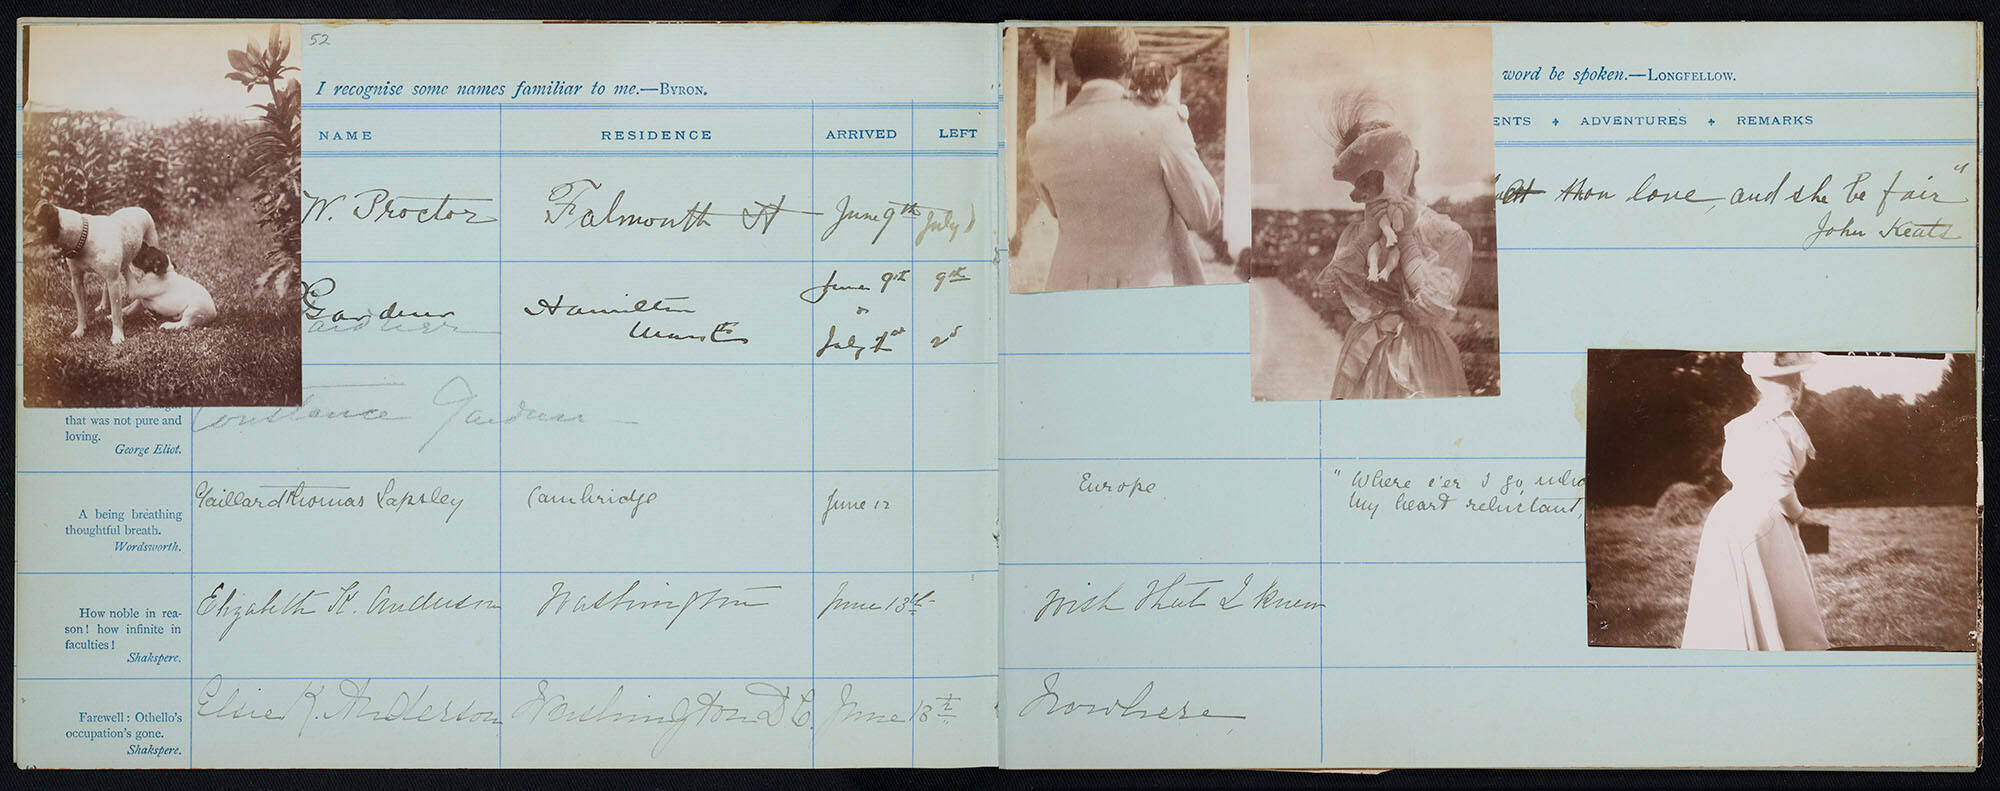 52
I recognise some names familiar to me.—BYRON.
word be spoken.—LONGFELLOW.
NAME RESIDENCE ARRIVED LEFT
ENTS ✦ ADVENTURES ✦ REMARKS
W. Proctor Falmouth St June 9th July 1
thou love, and she be fair"
John Keats
Gardner Hamilton June 9th 9th
Gardner Mass July 1st 2d
that was not pure and
loving.
George Eliot.
Constance Gardner
A being breathing
thoughtful breath.
Wordsworth.
Gaillard Thomas Lapsley Cambridge June 12
Europe "Where e'er I go
my heart reluctant,
How noble in rea-
son! how infinite in
faculties!
Shakspere.
Elizabeth K. Anderson Washington June 13th
Wish that I knew
Farewell: Othello's
occupation's gone.
Shakspere.
Elsie K. Anderson Washington D.C. June 13th
Nowhere